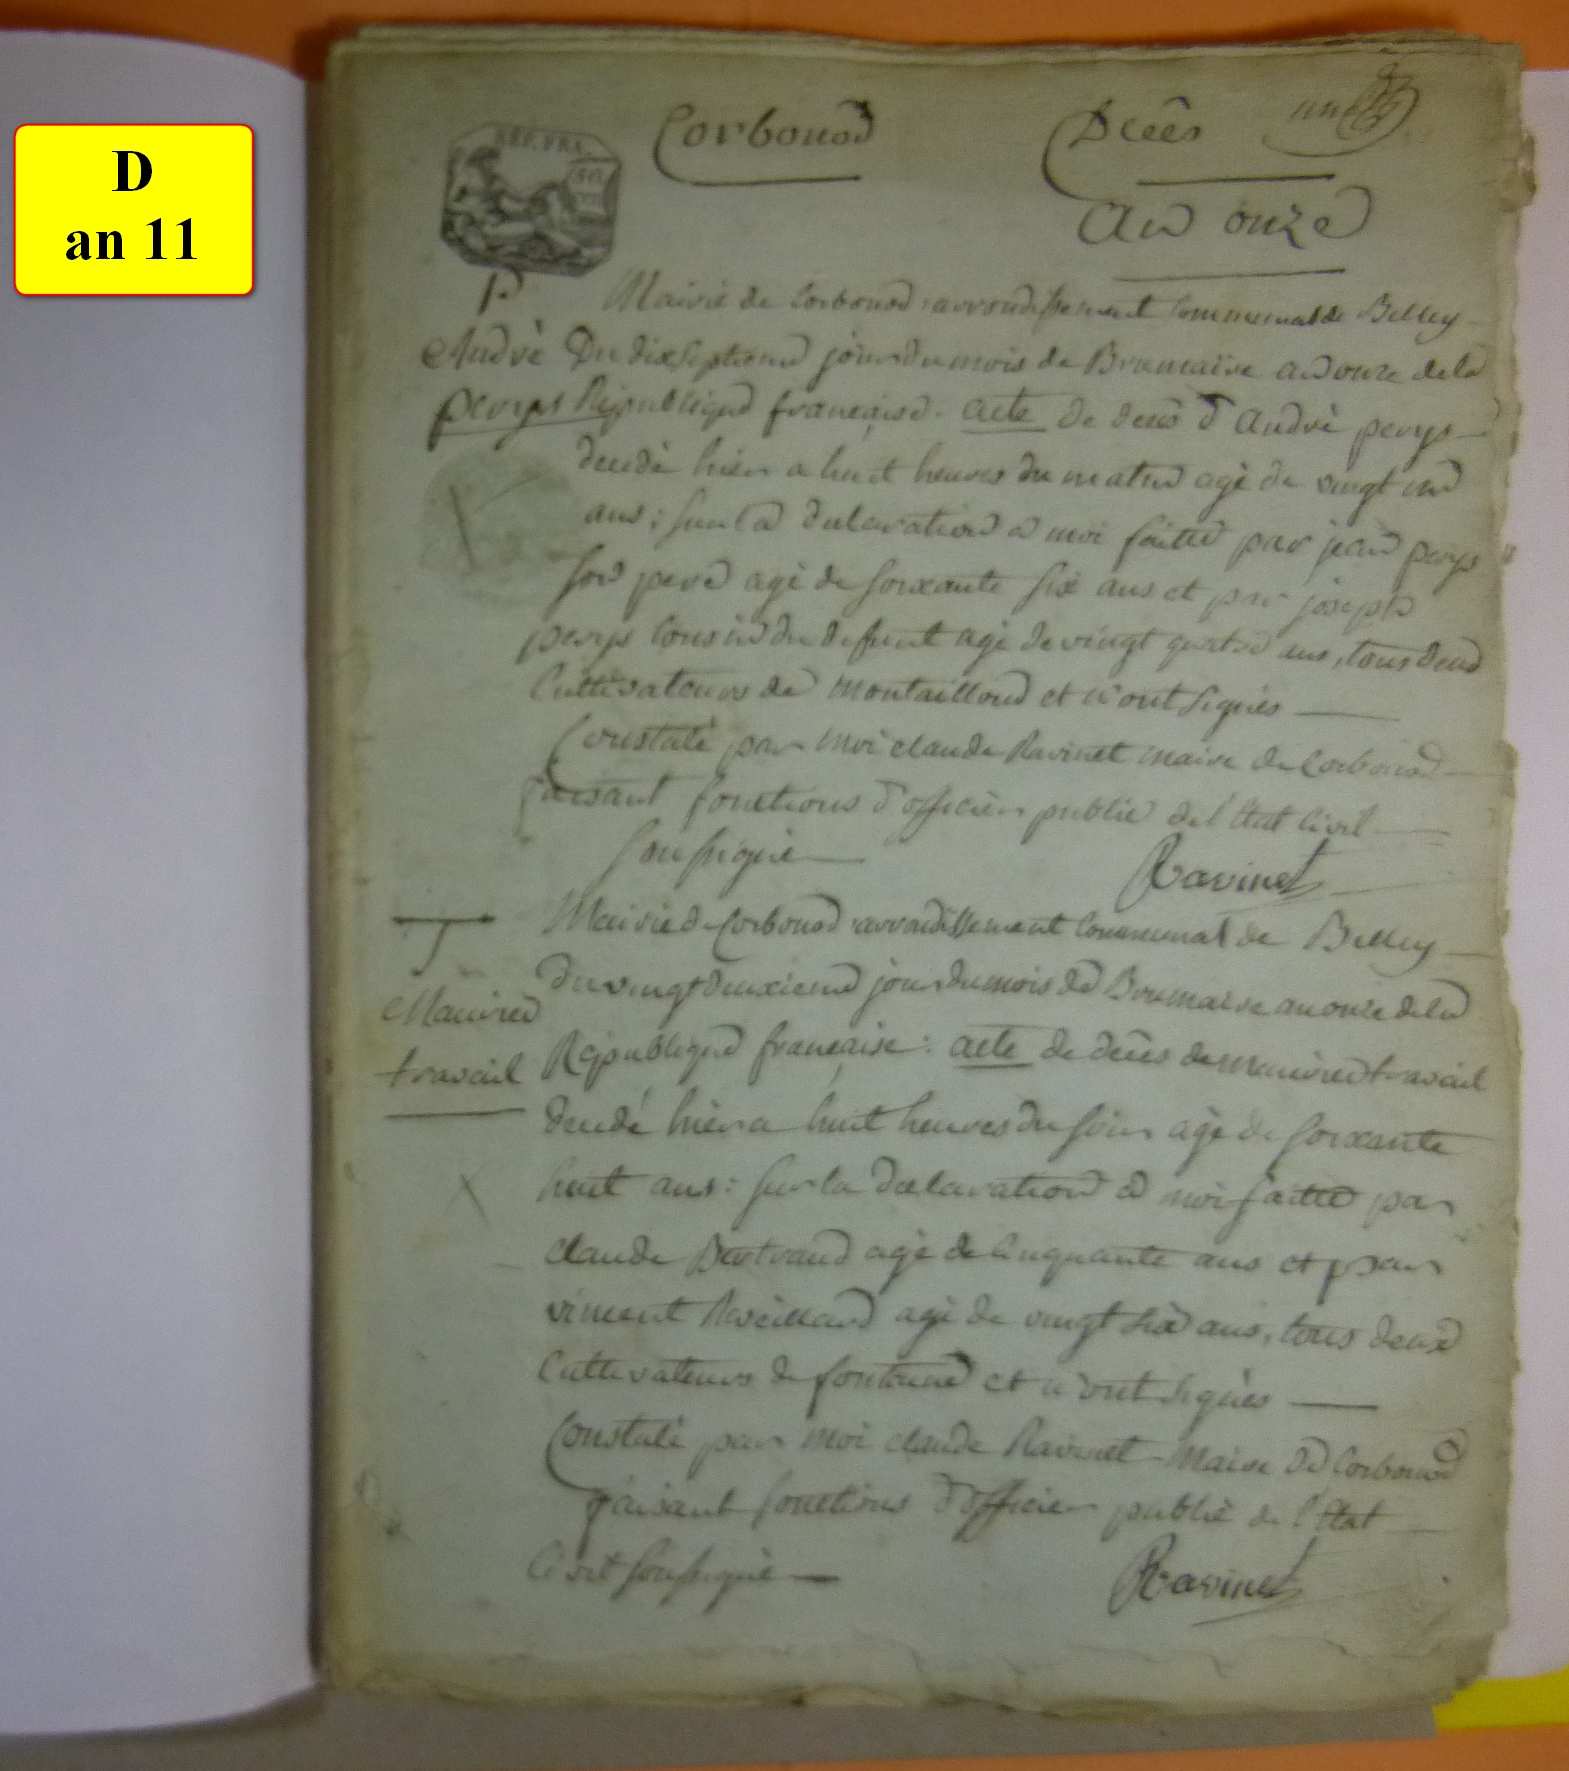 D
an 11
Corbonod Décès
an onze
REP. FRA.
P
Mairie de Corbonod arrondissement Communal de Belley
André Du dixseptieme jour du mois de Brumaire an onze de la
perys République française. acte de décès d'André perys
décédé hier a huit heures du matin agé de vingt un
ans; sur la declaration a moi faitte par jean perys
son pere agé de soixante six ans et par joseph
perys Cousin du defunt agé de vingt quatre ans, tous deux
Cultivateurs de montailloud et n'ont signés
Constaté par moi claude Ravinet maire de Corbonod
faisant fonctions d'officier public de l'Etat Civil
soussigné Ravinet
T
Mairie de Corbonod arrondissement Communal de Belley
du vingt deuxieme jour du mois de Brumaire an onze de la
travail République française: acte de décès de travail
décédé hier a huit heures du soir agé de soixante
huit ans: sur la declaration a moi faitte par
claude Bertrand agé de Cinquante ans et par
vincent Reveillard agé de vingt six ans, tous deux
Cultivateurs de et n'ont signés
Constaté par moi claude Ravinet Maire de Corbonod
faisant fonctions d'officier public de l'Etat
Civil soussigné Ravinet